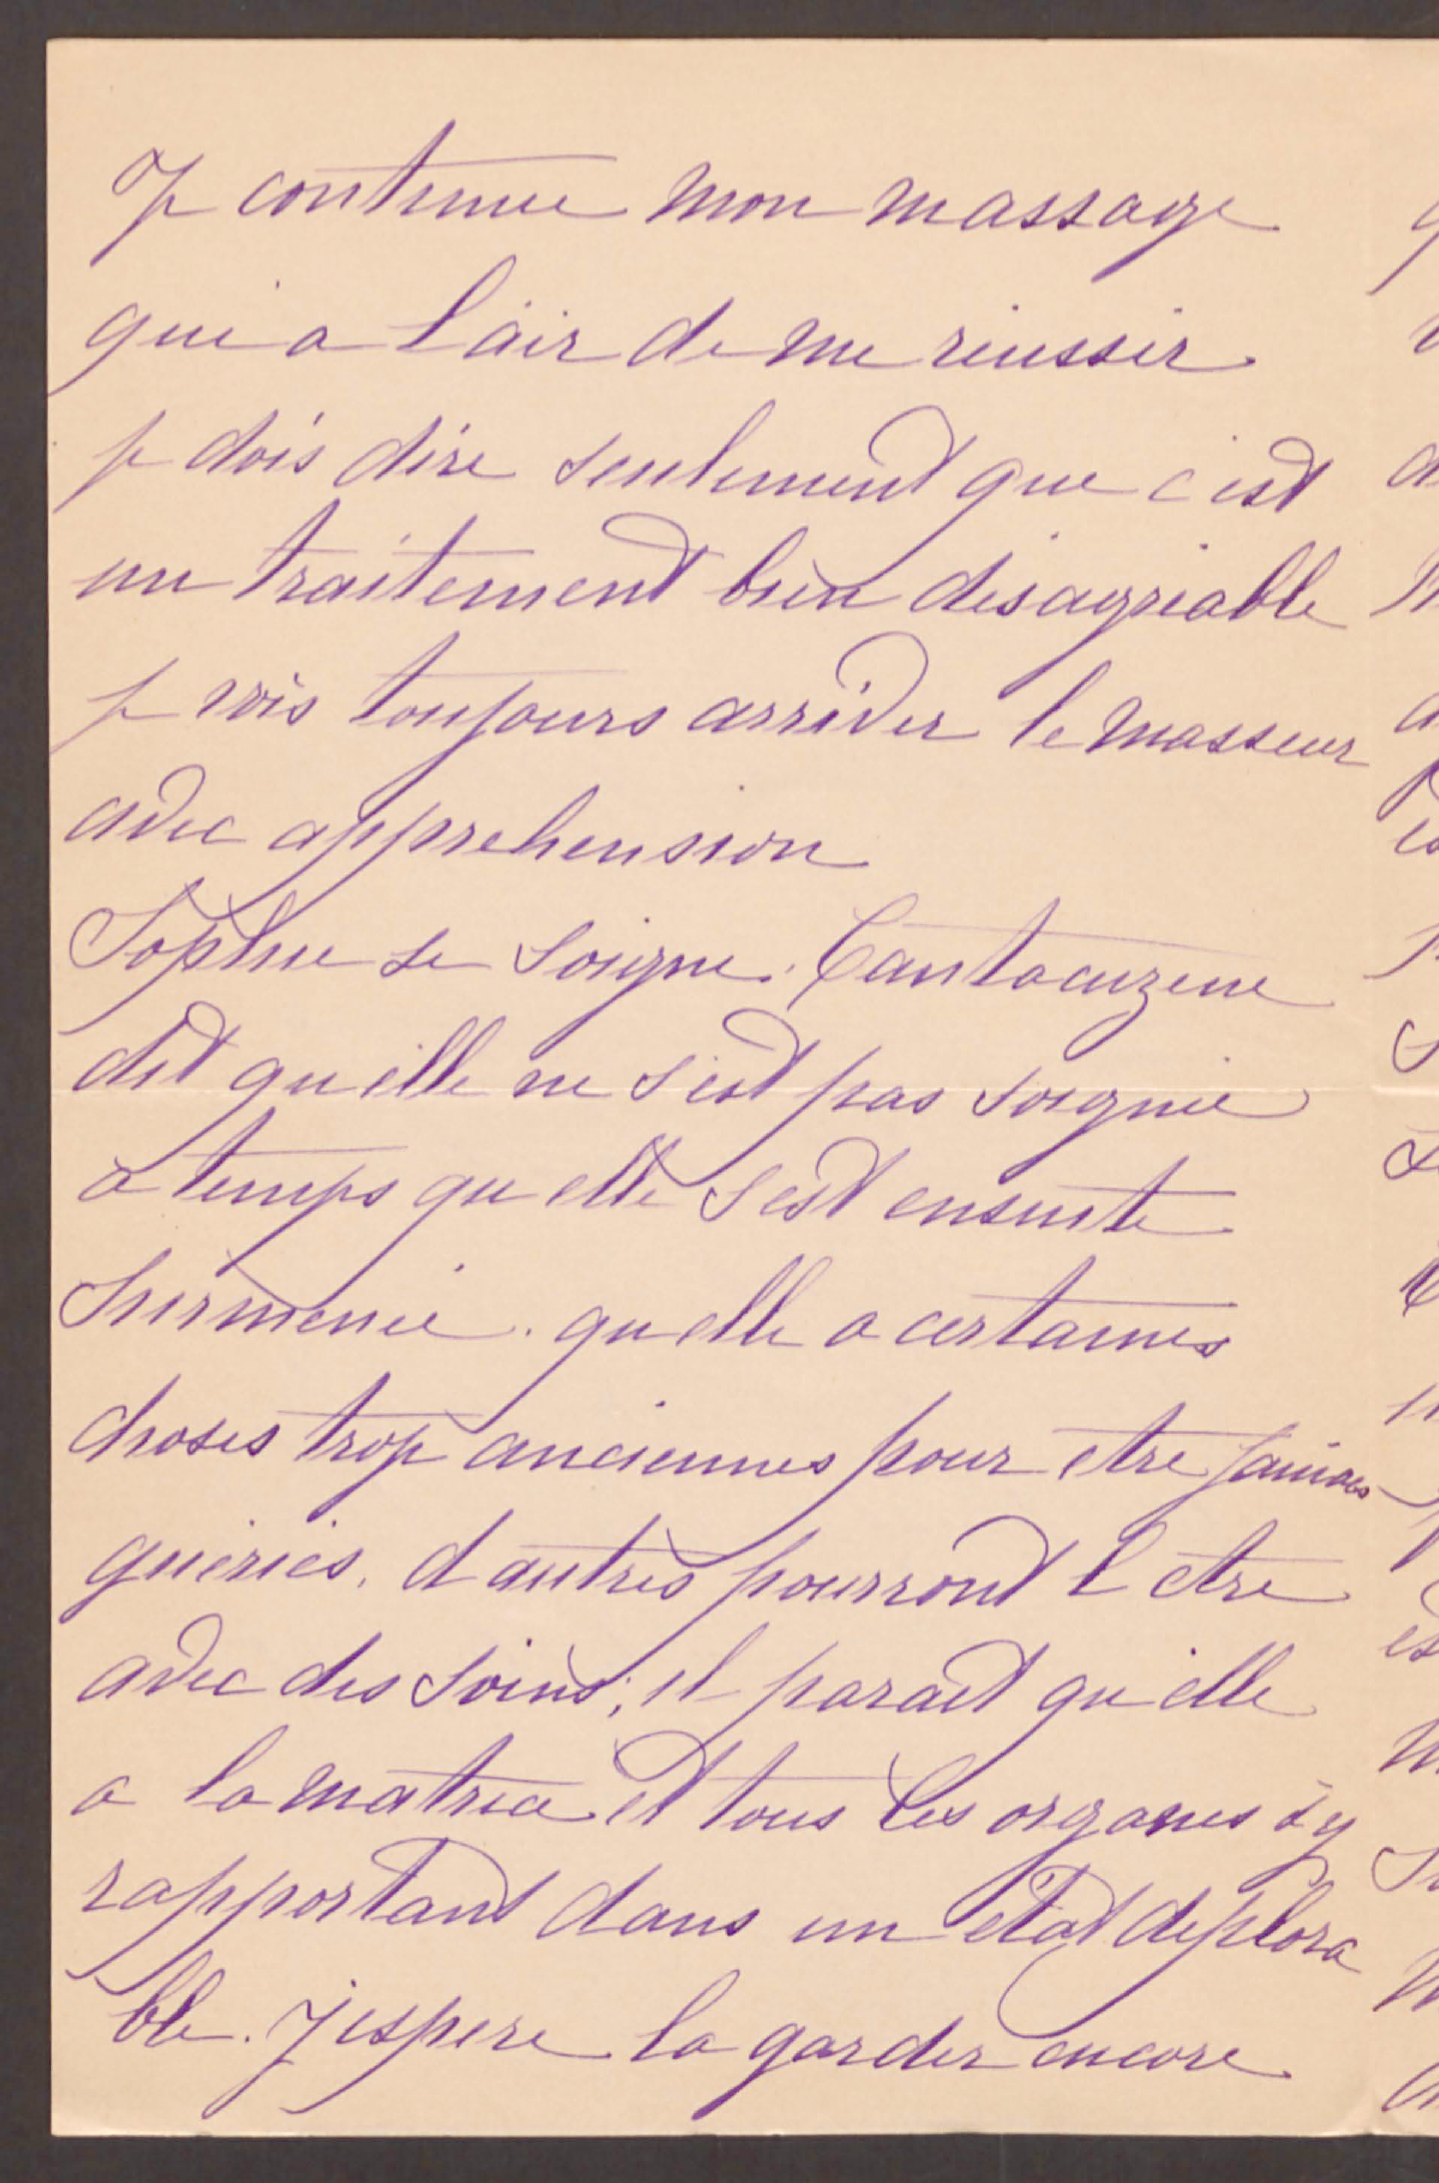 Je continue mon massage
qui a l'air de me reussir
je dois dire seulement que c est
un traitement bien desagreable
je vois toujours arriver le masseur
avec apprehension
Sophie se soigne. Cantacuzene
dit qu elle ne s est pas soignée
a temps qu elle s est ensuite
surmenée. qu elle a certaines
choses trop anciennes pour etre jamais
guéries. d autres pourront l etre
avec des soins; il parait qu elle
a la matrice et tous les organes s'y
rapportant dans un état deplora
ble. J espere la garder encore